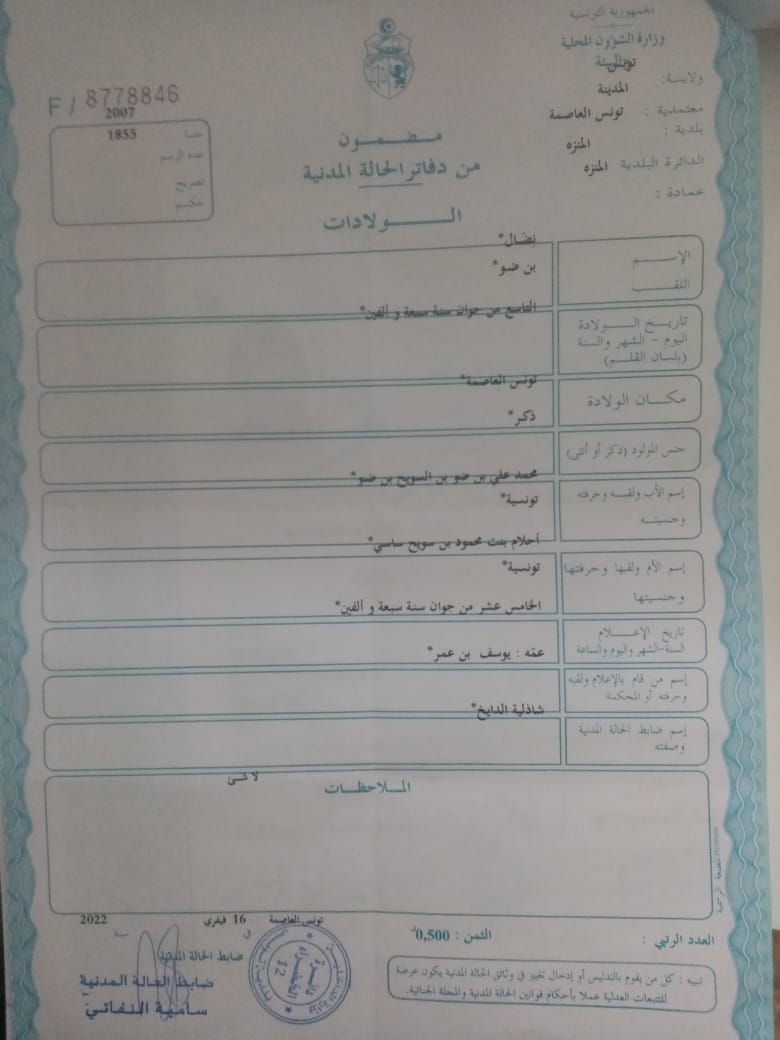 الجمهورية التونسية
وزارة الشؤون المحلية
والبيئة
ولايـة: تونس
المدينة
معتمدية : تونس العاصمة
بلدية :
المنزه
الدائرة البلدية المنزه
عمادة :
F / 8778846
سنة 2007
عدد الرسم 1855
تصريح
حكم
مضمون
من دفاتر الحالة المدنية
الولادات
الإسم
نِضَال*
اللقب
بن ضو*
تاريخ الولادة
اليوم - الشهر والسنة
(بلسان القلم)
التاسع من جوان سنة سبعة و ألفين*
مكان الولادة
تونس العاصمة*
جنس المولود (ذكر أو أنثى)
ذكر*
إسم الأب ولقبه وحرفته
وجنسيته
محمد علي بن ضو بن السويح بن ضو*
تونسية*
إسم الأم ولقبها وحرفتها
وجنسيتها
أحلام بنت محمود بن سويح ساسي*
تونسية*
تاريخ الإعلام
السنة-الشهر واليوم والساعة
الخامس عشر من جوان سنة سبعة و ألفين*
إسم من قام بالإعلام ولقبه
وحرفته أو المحكمة
عمّه : يوسف بن عمر*
إسم ضابط الحالة المدنية
وصفته
شاذلية الدايخ*
الملاحظات
لا شئ
تونس العاصمة في 16 فيفري سنة 2022
ضابط الحالة المدنية
ضابط الحالة المدنية
سامية النفاتي
12
العدد الرتبي :
الثمن : 0,500د
تنبيه : كل من يقوم بالتدليس أو إدخال تغيير في وثائق الحالة المدنية يكون عرضة
للتتبعات العدلية عملا بأحكام قوانين الحالة المدنية والمجلة الجنائية.
المطبعة الرسمية